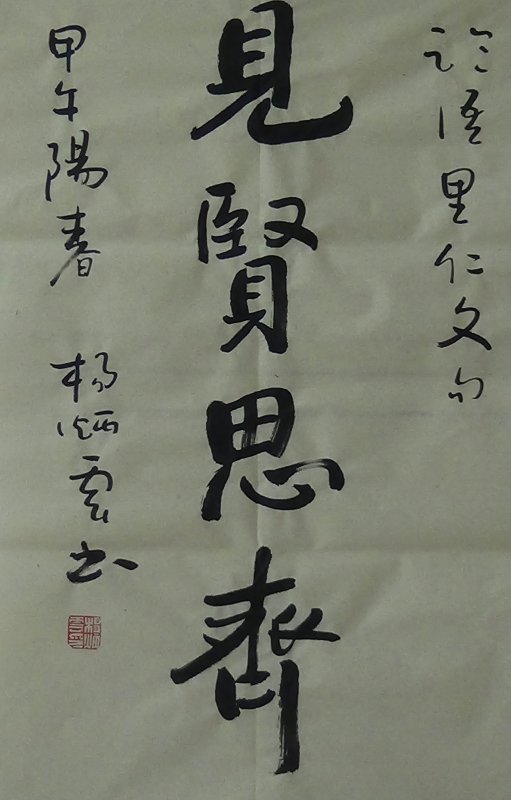 論語里仁文句
見賢思齊
甲午陽春 楊炳雲书